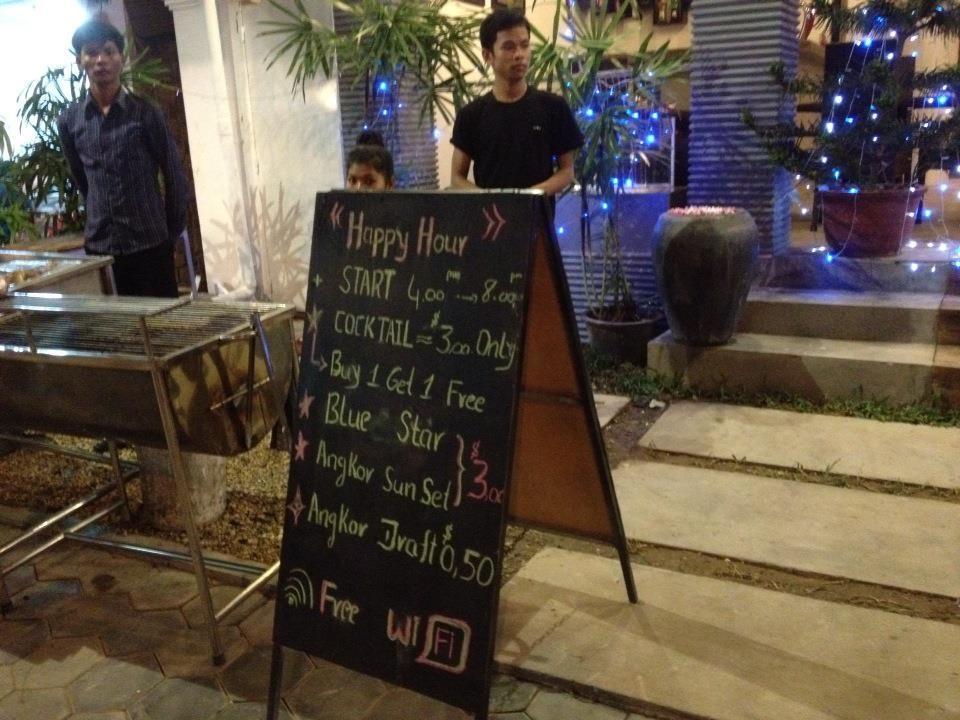 « Happy Hour »
+ START 4.00 pm → 8.00 pm
COCKTAIL = $3.00 Only
↳ Buy 1 Get 1 Free
Blue Star
Angkor Sun Set } $3.00
Angkor Draft $0,50
Free WIFi